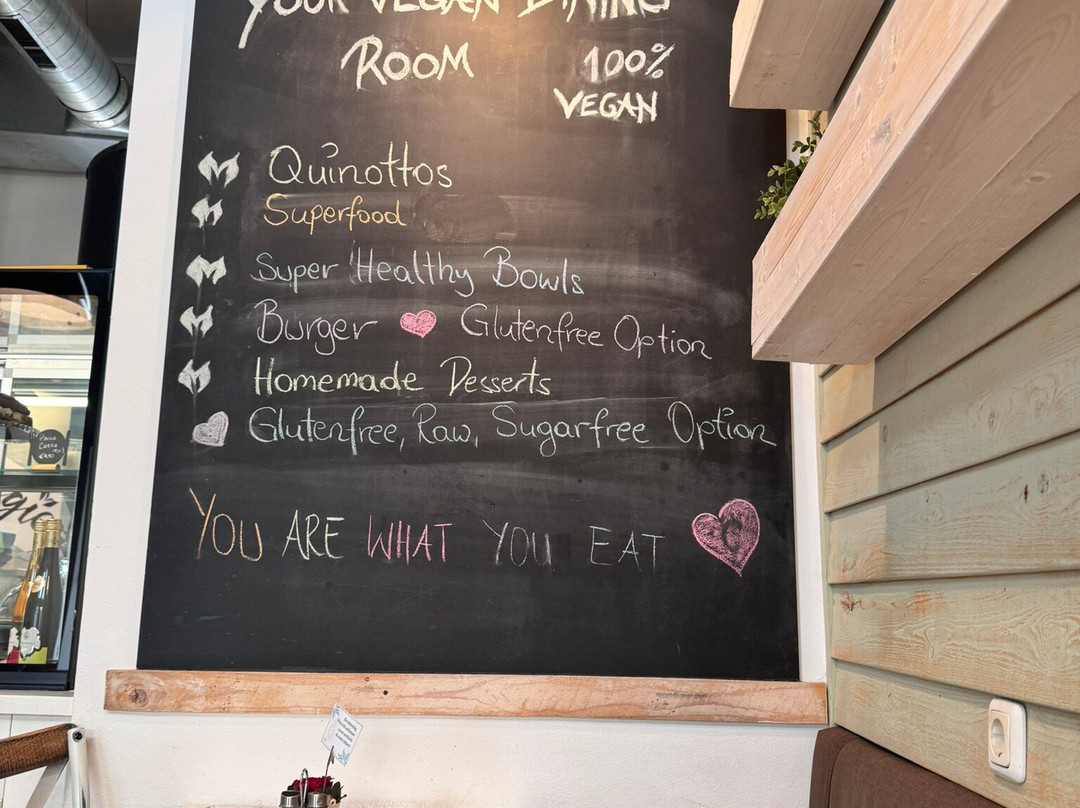 YOUR VEGAN DINING
ROOM
100%
VEGAN
Quinottos
Superfood
Super Healthy Bowls
Burger Glutenfree Option
Homemade Desserts
Glutenfree, Raw, Sugarfree Option
YOU ARE WHAT YOU EAT